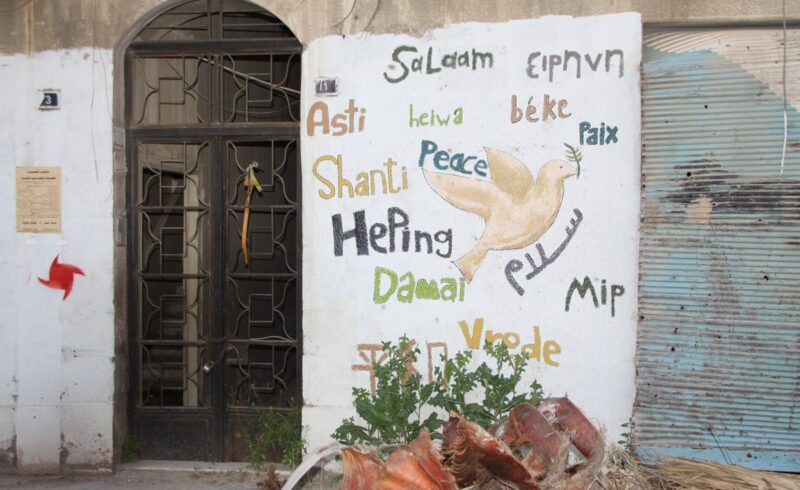 SaLaam
ειρηνη
3
Asti
heiwa
béke
Paix
Peace
Shanti
HePing
سلام
Damai
Mip
Vrede